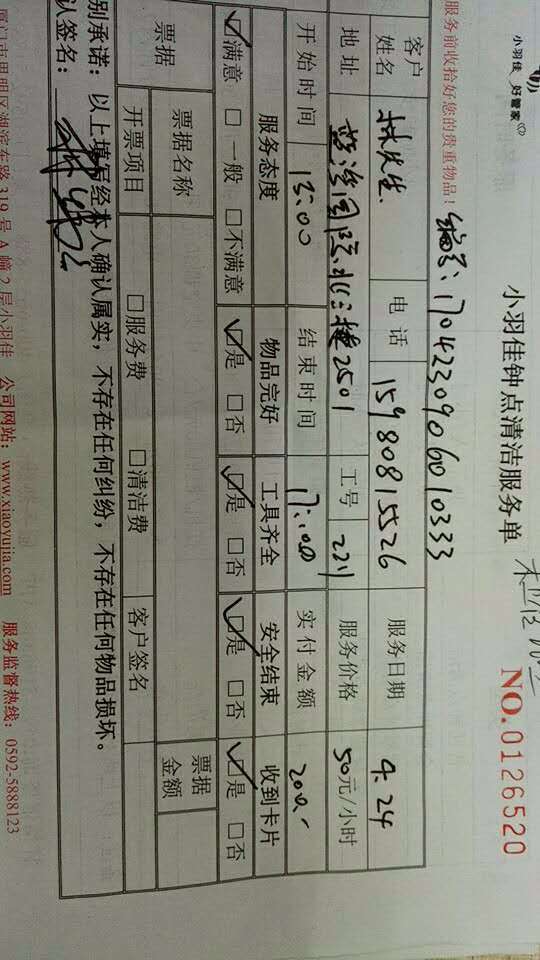 小羽佳 好管家
小羽佳钟点清洁服务单
NO.0126520
服务前收拾好您的贵重物品！
编号：1704230906010333
客户姓名 林先生 电话 15980815526 服务日期 4.24
地址 2501 工号 221 服务价格 50元/小时
开始时间 13:00 结束时间 17:00 实付金额 200.-
服务态度 物品完好 工具齐全 安全结束 收到卡片
☑满意 □一般 □不满意 ☑是 □否 ☑是 □否 ☑是 □否 ☑是 □否
票据 票据名称 票据金额
开票项目 □服务费 □清洁费 客户签名
别承诺：以上填写经本人确认属实，不存在任何纠纷，不存在任何物品损坏。
认签名：
厦门市思明区湖滨东路319号A幢2层小羽佳 公司网站：www.xiaoyujia.com 服务监督热线：0592-5888123